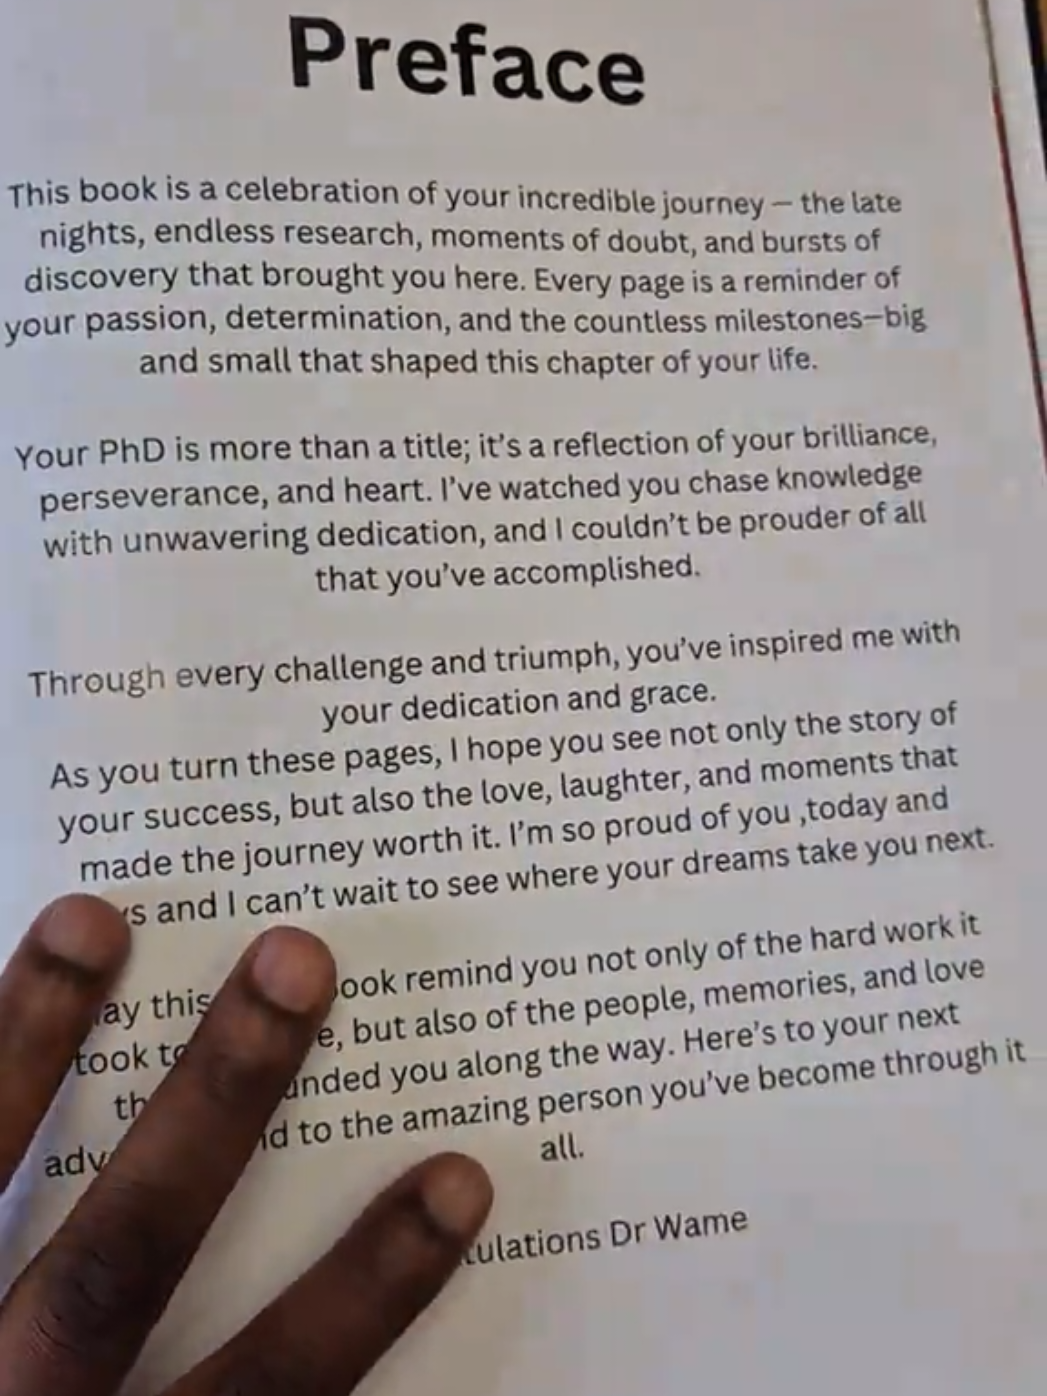 Preface
This book is a celebration of your incredible journey – the late
nights, endless research, moments of doubt, and bursts of
discovery that brought you here. Every page is a reminder of
your passion, determination, and the countless milestones—big
and small that shaped this chapter of your life.
Your PhD is more than a title; it's a reflection of your brilliance,
perseverance, and heart. I've watched you chase knowledge
with unwavering dedication, and I couldn't be prouder of all
that you've accomplished.
Through every challenge and triumph, you've inspired me with
your dedication and grace.
As you turn these pages, I hope you see not only the story of
your success, but also the love, laughter, and moments that
made the journey worth it. I'm so proud of you ,today and
and I can't wait to see where your dreams take you next.
this remind you not only of the hard work it
took but also of the people, memories, and love
you along the way. Here's to your next
to the amazing person you've become through it
all.
Dr Wame